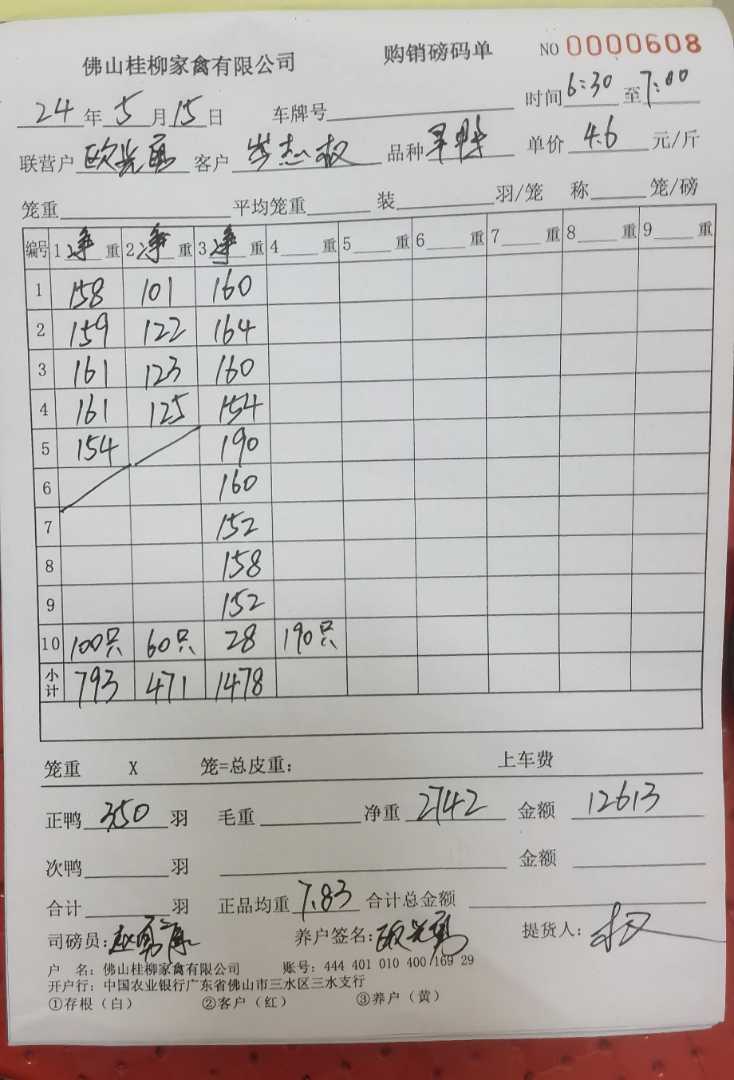 佛山桂柳家禽有限公司 购销磅码单 NO 0000608
24年5月15日 车牌号 时间6:30至7:00
联营户 欧光勇 客户 岑志权 品种 单价 4.6 元/斤
笼重 平均笼重 装 羽/笼 称 笼/磅
编号 1净重 2净重 3净重 4 重 5 重 6 重 7 重 8 重 9 重
1 158 101 160
2 159 122 164
3 161 123 160
4 161 125 154
5 154 190
6 160
7 152
8 158
9 152
10 100只 60只 28 190只
小计 793 471 1478
笼重 X 笼=总皮重: 上车费
正鸭 350 羽 毛重 净重 2742 金额 12613
次鸭 羽 金额
合计 羽 正品均重 7.83 合计总金额
司磅员: 养户签名:欧光勇 提货人: 权
户 名: 佛山桂柳家禽有限公司 账号: 444 401 010 400 169 29
开户行: 中国农业银行广东省佛山市三水区三水支行
①存根(白) ②客户(红) ③养户(黄)